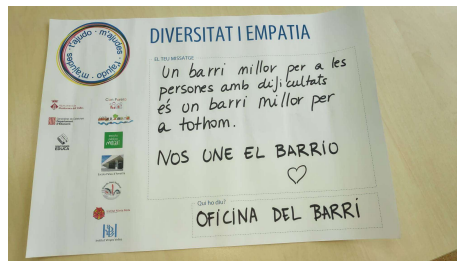 t'ajudo · m'ajudes · t'ajudo · m'ajudes
DIVERSITAT I EMPATIA
EL TEU MISSATGE
Un barri millor per a les
persones amb dificultats
és un barri millor per
a tothom.
NOS UNE EL BARRIO
Qui ho diu?
OFICINA DEL BARRI